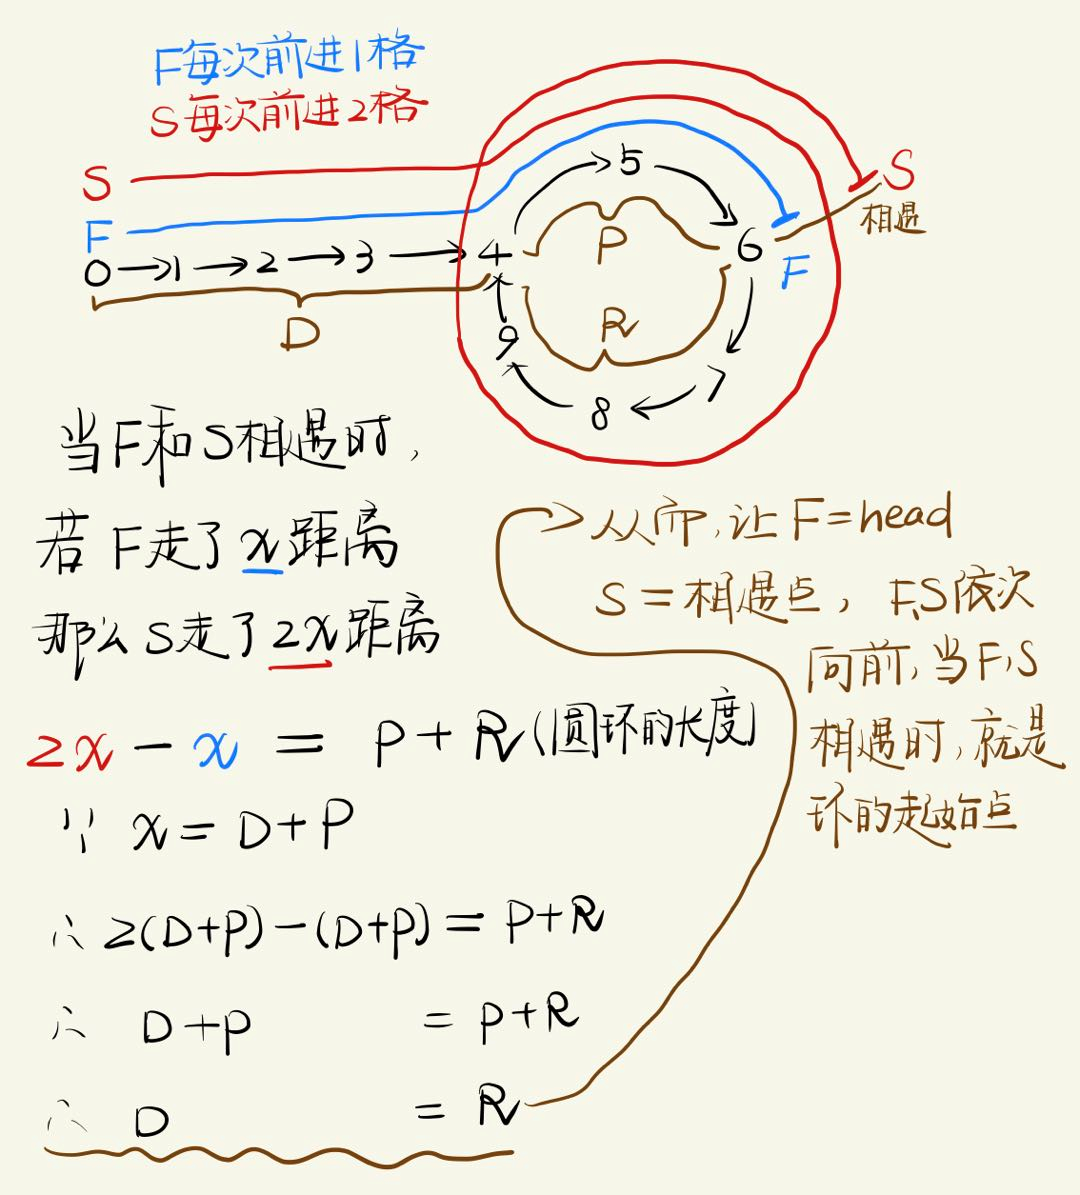 F每次前进1格
S每次前进2格
S
F
0→1→2→3→4
5
6
7
8
9
P
R
D
S
相遇
F
当F和S相遇时,
若F走了x距离
那么S走了2x距离
2x - x = P+R(圆环的长度)
∵ x = D+P
∴ 2(D+P)-(D+P) = P+R
∴ D+P = P+R
∴ D = R
从而,让F=head
S=相遇点, F、S依次
向前,当F,S
相遇时,就是
环的起始点